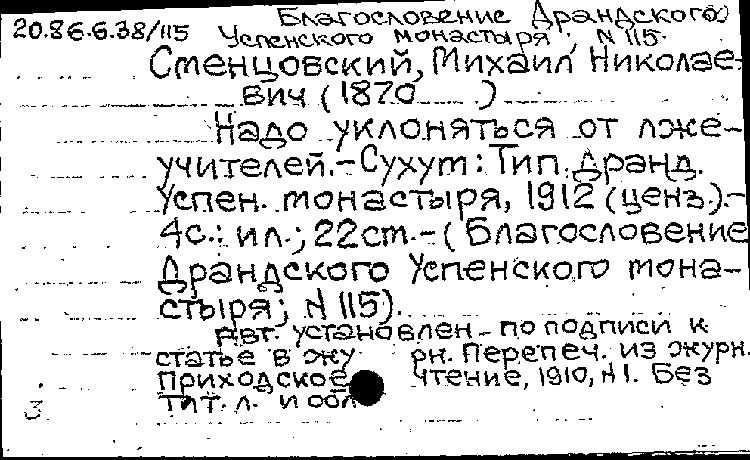 Благословение Драндского
20.86.6.38/115 Успенского монастыря, N 115.
Сменцовский, Михаил Николае-
вич (1870 )
Надо уклоняться от лже-
учителей.-Сухум: Тип. Дранд.
Успен. монастыря, 1912 (ценз.).-
4с.: ил.; 22см.-(Благословение
Драндского Успенского мона-
стыря; N 115).
Авт. установлен по подписи к
статье в жу рн. Перепеч. из журн.
Приходское чтение, 1910, N 1. Без
тит. л. и обл
3